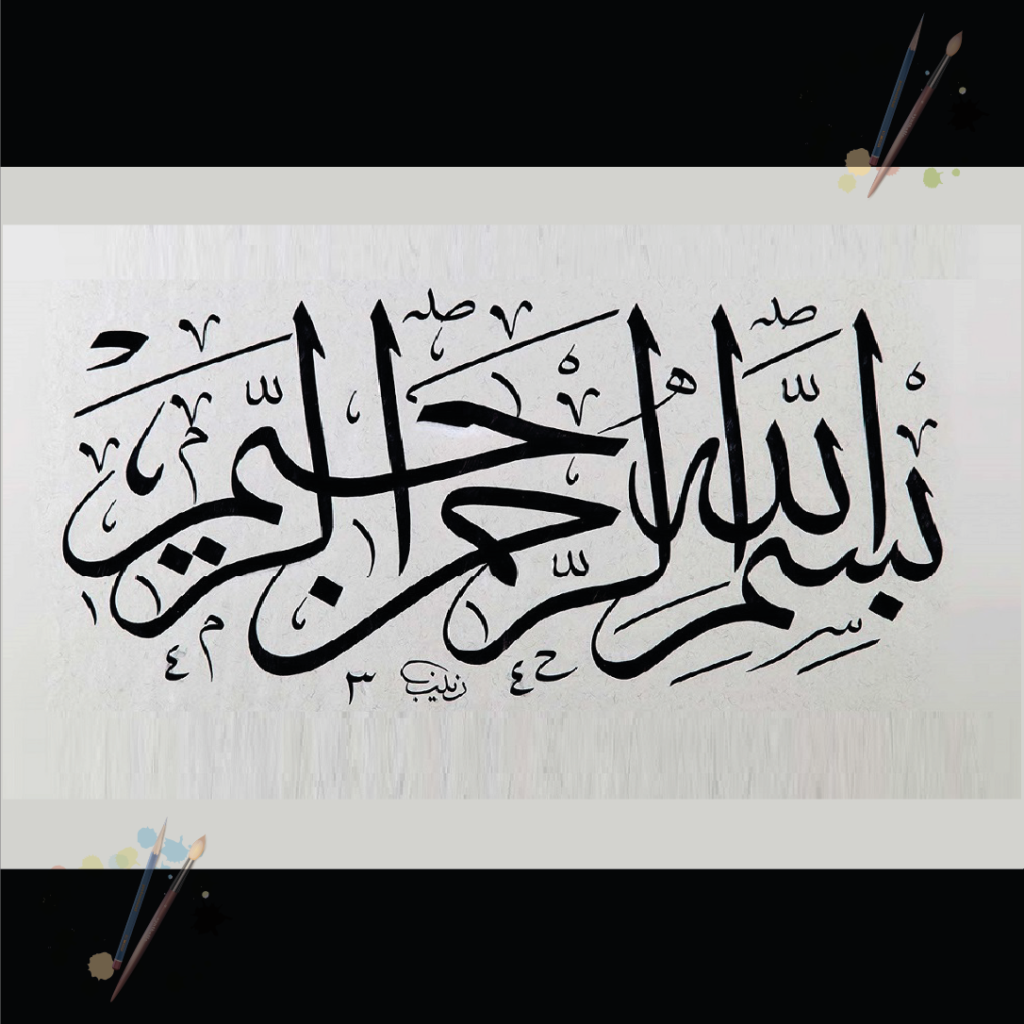 بِسْمِ اللّٰهِ الرَّحْمٰنِ الرَّحِيْمِ
زینب